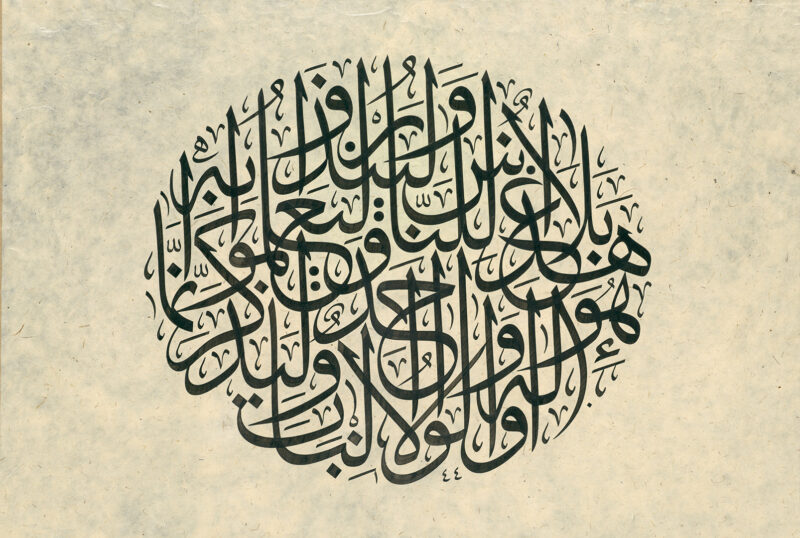 هذا بلاغ للناس ولينذروا به وليعلموا أنما هو إله واحد وليذكر أولوا الألباب